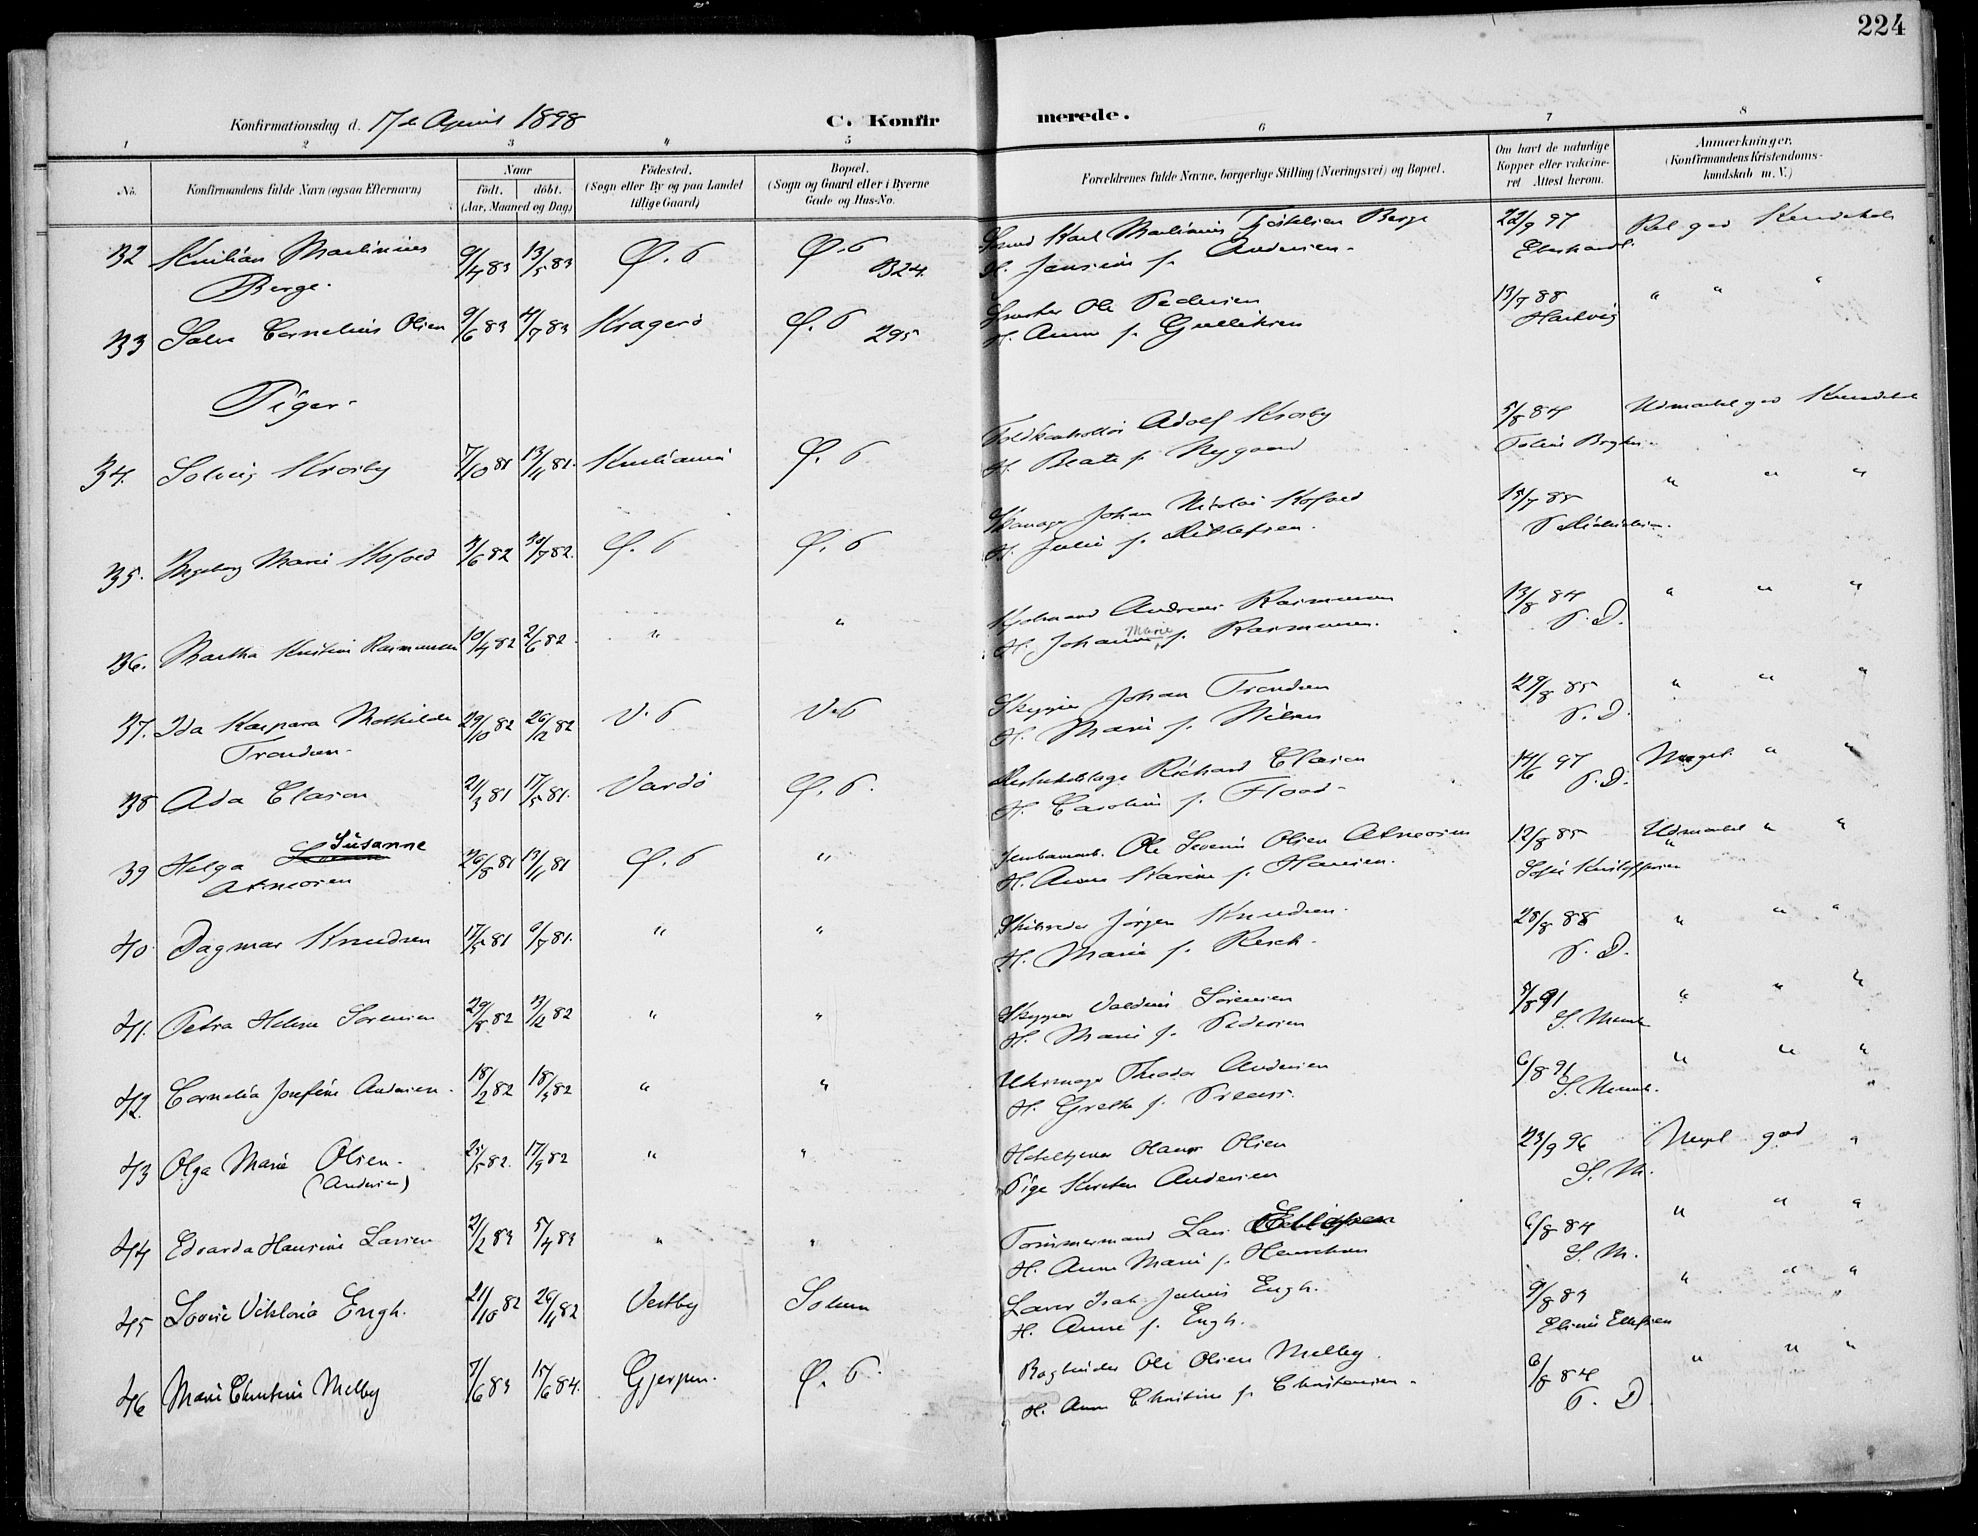 224
Konfirmationsdag d. 17de April 1898
C. Konfirmerede.
1 2 3 4 5 6 7 8
No.
Konfirmandens fulde Navn (ogsaa Efternavn)
Naar
født. døbt.
(Aar, Maaned og Dag)
Fødested.
(Sogn eller By og paa Landet
tillige Gaard)
Bopæl.
(Sogn og Gaard eller i Byerne
Gade og Hus-No.
Forældrenes fulde Navne, borgerlige Stilling (Næringsvei) og Bopæl.
Om havt de naturlige
Kopper eller vakcine-
ret Attest herom.
Anmærkninger.
(Konfirmandens Kristendoms-
kundskab m. V.)
32 Kristian Martinius 9/4 83 13/5 83 Ø. 6 Ø. 6 324. Smed Karl Martinius Berge 22/9 97 Rel god Kundskab
Berge. H. f. Andersen Eberhardt
33 Cornelius Olsen 9/6 83 Kragerø Ø. 6 295 Ole Pedersen 13/7 88 " " "
H. Anne f. Gulliksen Hartvig
Piger.
34. Solveig Krosby 7/10 81 13/11 81. Kristiania Ø. 6 Toldkontrollør Adolf Krosby 5/8 84 Udmærket god Kundskab
H. Beate f. Nygaard
35. Ingeborg Marie Kofoed 82 30/7 82. Ø. 6 Ø. 6 Johan Nicolai Kofoed 15/7 85 " " "
H. Julie f. Ditlefsen.
36. Martha Kristine Rasmussen 10/4 82 2/6 82. " " Andreas Rasmussen 13/8 84 " " "
H. Johanne Marie f. Rasmussen. P. D.
37. Ida Kaspara Mathilde 29/10 82 26/12 82 V. 6 V. 6 Skipper Johan Trondsen 29/8 85 " " "
Trondsen. H. Marie f. Nilsen P. D.
38 Ada Clason 21/3 81 17/5 81. Vardø Ø. 6. Richard Clason 14/6 97 Meget " "
H. Caroline f. Flood P. D.
39 Helga Susanne 26/8 81 13/11 81 Ø. 6 " Ole Severin Olsen Atneosen 12/8 85 Udmærket " "
Atneosen H. Anne Karine f. Hansen. Sofie Kristoffersen
40. Dagmar Knudsen 17/5 81 6/7 81. " " Skibsreder Jørgen Knudsen 28/8 88 " " "
H. Marie f. Resch. P. D.
41. Petra Helene Sørensen 29/8 82 3/12 82 " " Skipper Valdine Sørensen 5/8 91 " " "
H. Marie f. Pedersen S. Munk
42. Cornelia Josefine Andersen 18/2 82 18/5 82 " " Uhrmager Theodor Andersen 6/8 91 " " "
H. Grethe f. Preuss. S. Munk.
43 Olga Marie Olsen. 25/5 82. 17/9 82 " " Olaus Olsen 23/9 96 Meget god "
(Andersen) Pige Kirsten Andersen S. M.
44 Edvarda Hansine Larsen 2/2 83 5/4 83 " " Tømmermand Lars Ellefsen 6/8 84 " " "
H. Anne Marie f. Henrichsen S. M.
45 Lovise Viktoria Engh. 21/10 82 26/11 82 Vestby Solum Isak Julius Engh. 9/8 83 " " "
H. Anne f. Engh. Eline Ellefsen
46 Marie Christine Melby 7/6 83 15/6 84. Gjerpen. Ø. 6. Bogbinder Ole Olsen Melby 6/8 84 " " "
H. Anne Christine f. Christensen. P. D.